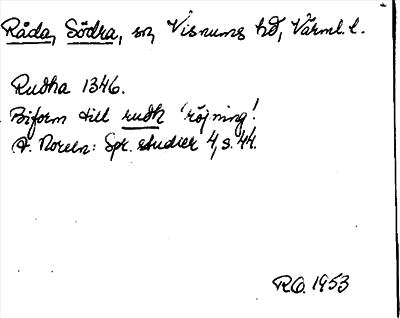 Råda, Södra, sn, Visnums hd, Värml. l.
Rudha 1346.
Biform till rudh 'röjning'.
A. Noreen: Spr. studier 4, s. 44.
R.O. 1953